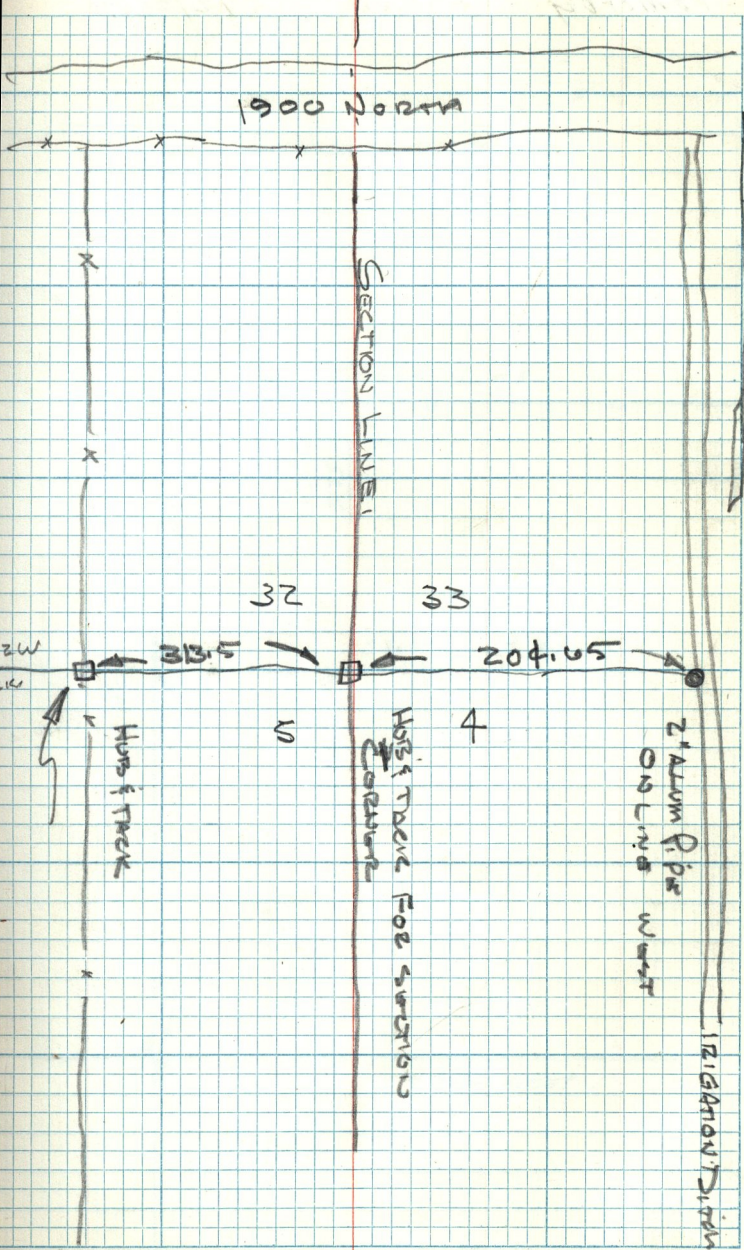 1900 NORTH
SECTION LINE
32
33
313.5
204.65
5
4
HUB & TACK
HUB & TACK FOR SECTION
CORNER
2" ALUM PIPE
ON LINE WEST
IRIGATION DITCH